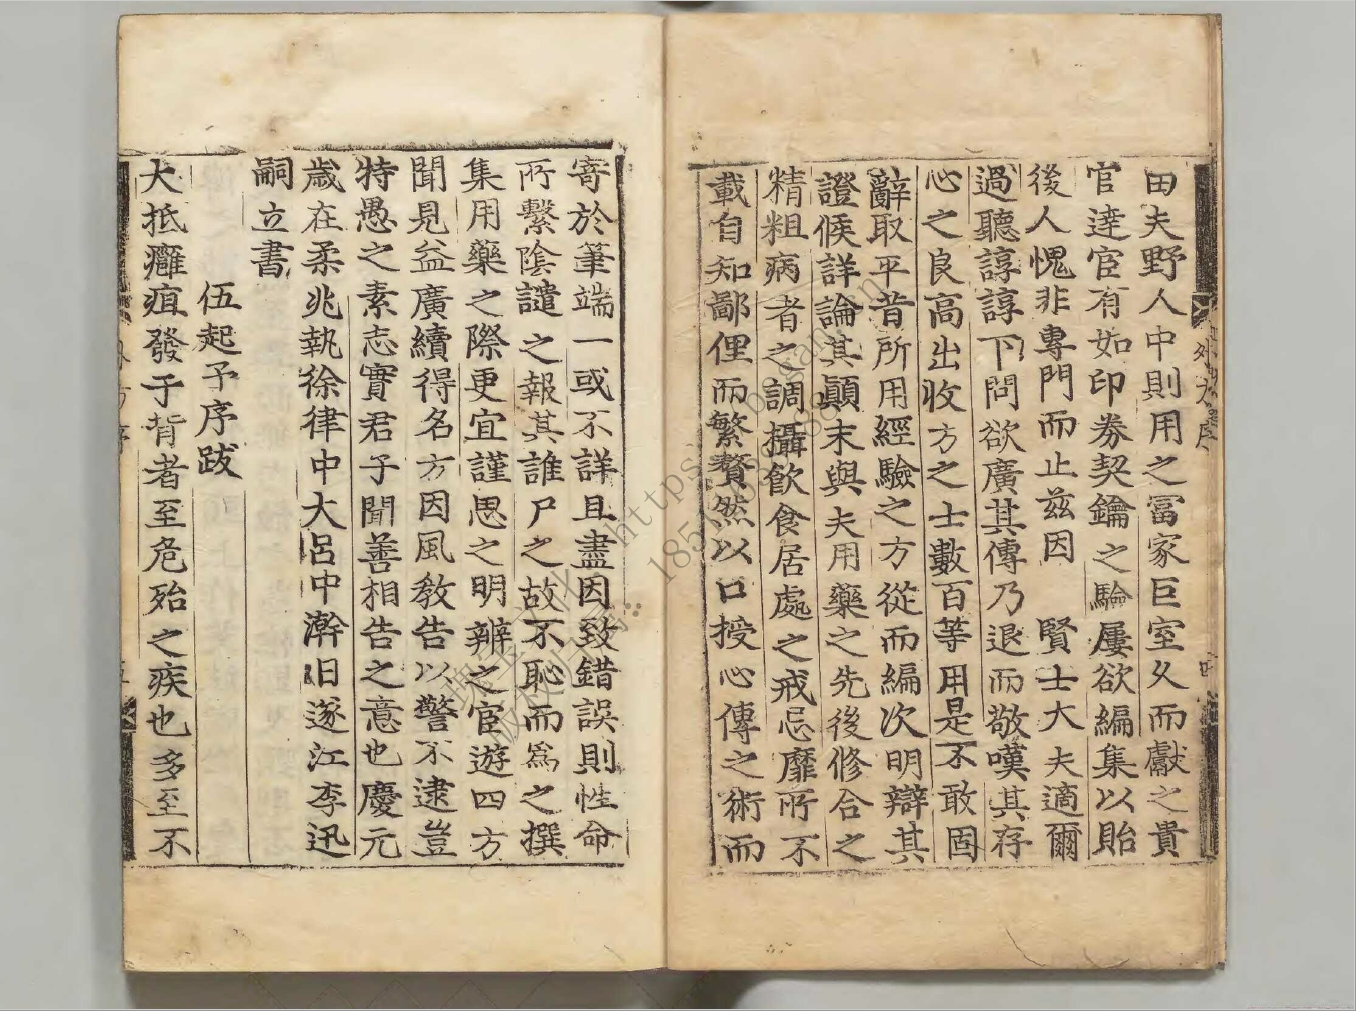 田夫野人中則用之冨家巨室乆而獻之貴
官逹宦有如印券契鑰之驗屢欲編集以貽
後人愧非專門而止兹因　賢士大夫適爾
過聽諄諄下問欲廣其傳乃退而敬嘆其存
心之良高出收方之士數百等用是不敢固
辭取平昔所用經驗之方從而編次明辯其
證候詳論其顛末與夫用藥之先後修合之
精粗病者之調攝飲食居處之戒忌靡所不
載自知鄙俚而繁贅然以口授心傳之術而
寄於筆端一或不詳且盡因致錯誤則性命
所繫隂譴之報其誰尸之故不恥而爲之撰
集用藥之際更宜謹思之明辨之宦遊四方
聞見益廣續得名方因風教告以警不逮豈
特愚之素志實君子聞善相告之意也慶元
歲在柔兆執徐律中大呂中澣日遂江李迅
嗣立書
伍起予序跋
大抵癰疽發于背者至危殆之疾也多至不